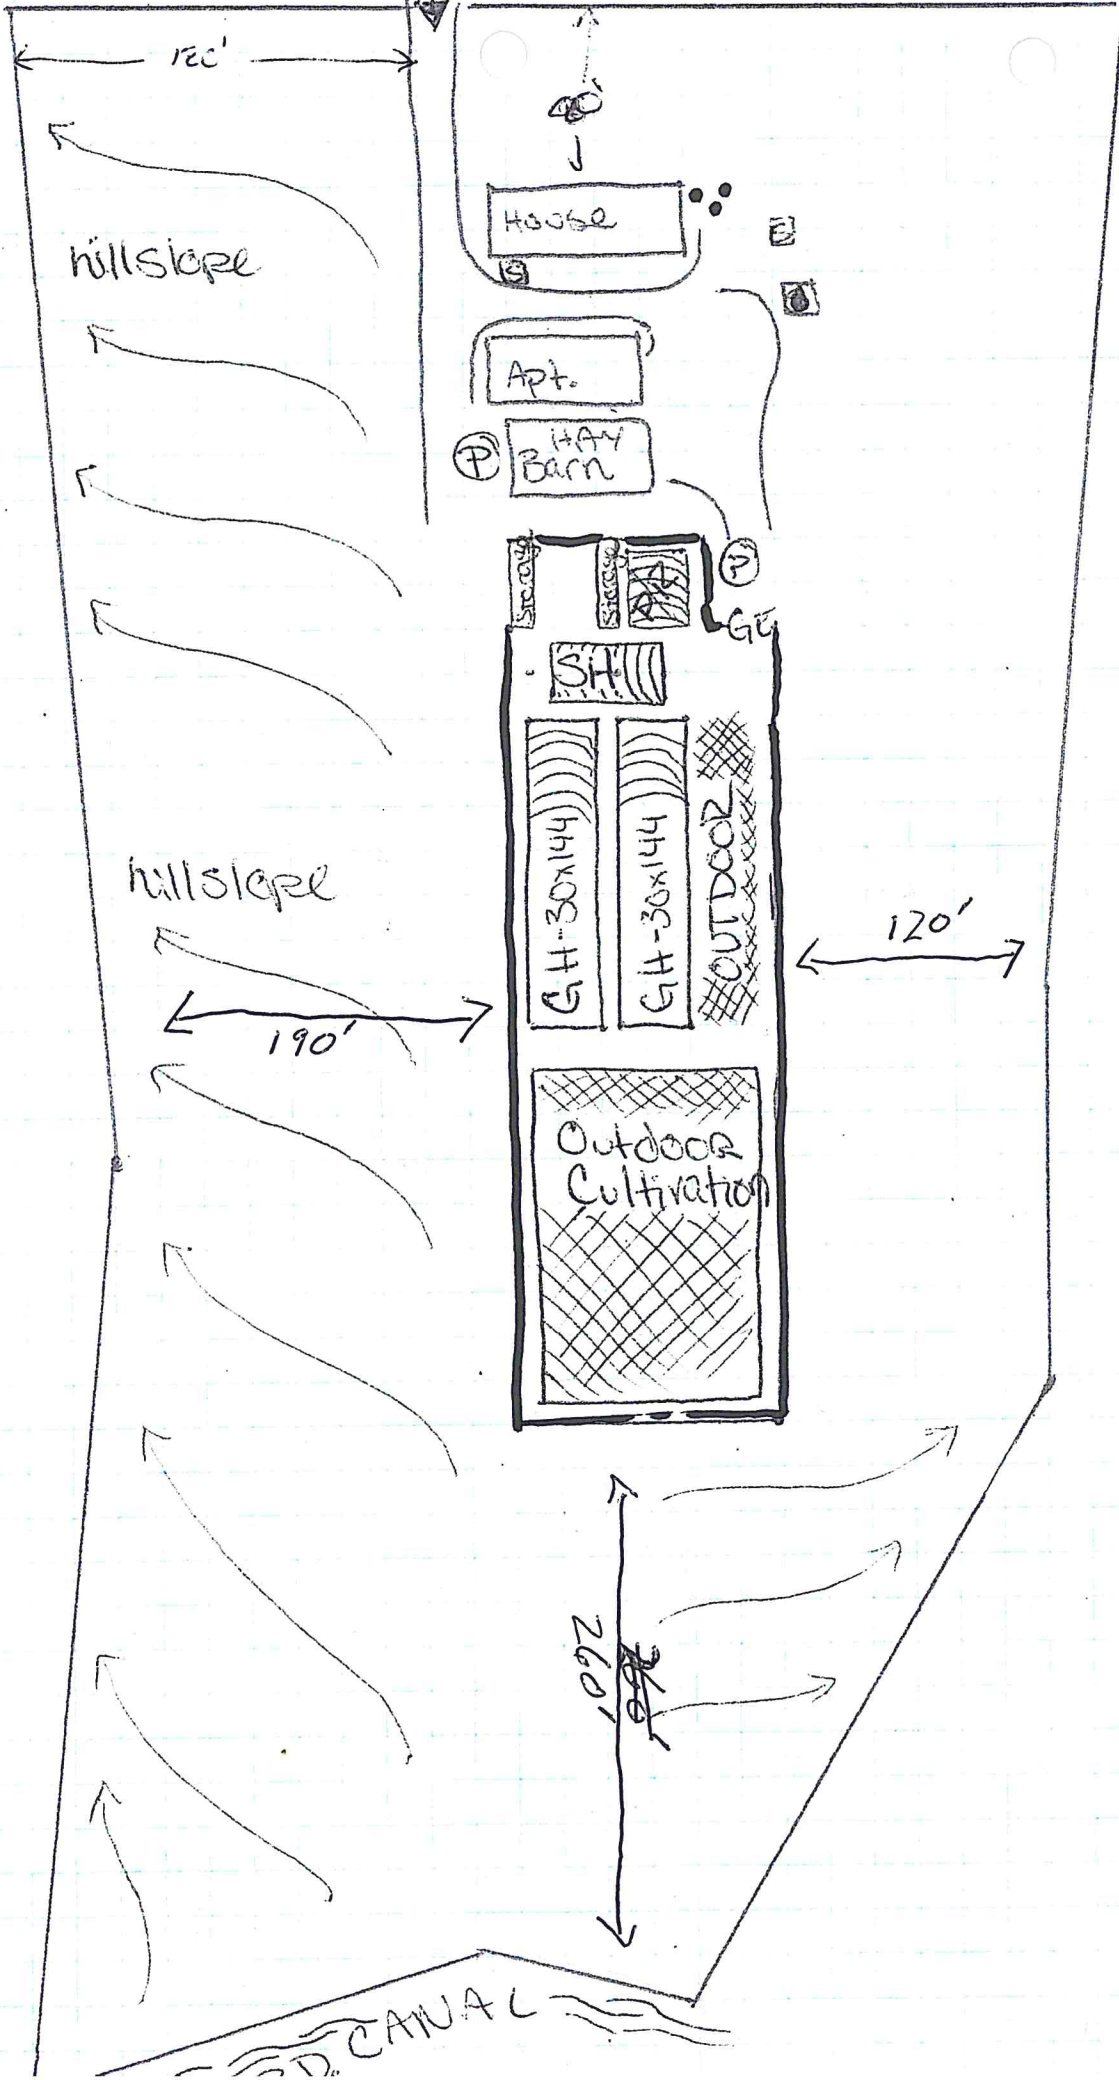 80'
House
E
S
hillslope
Apt.
HAY
Barn
P
P
Storage
Storage
SH
GH-30x144
GH-30x144
OUTDOOR
hillslope
120'
190'
Outdoor
Cultivation
260'
CANAL